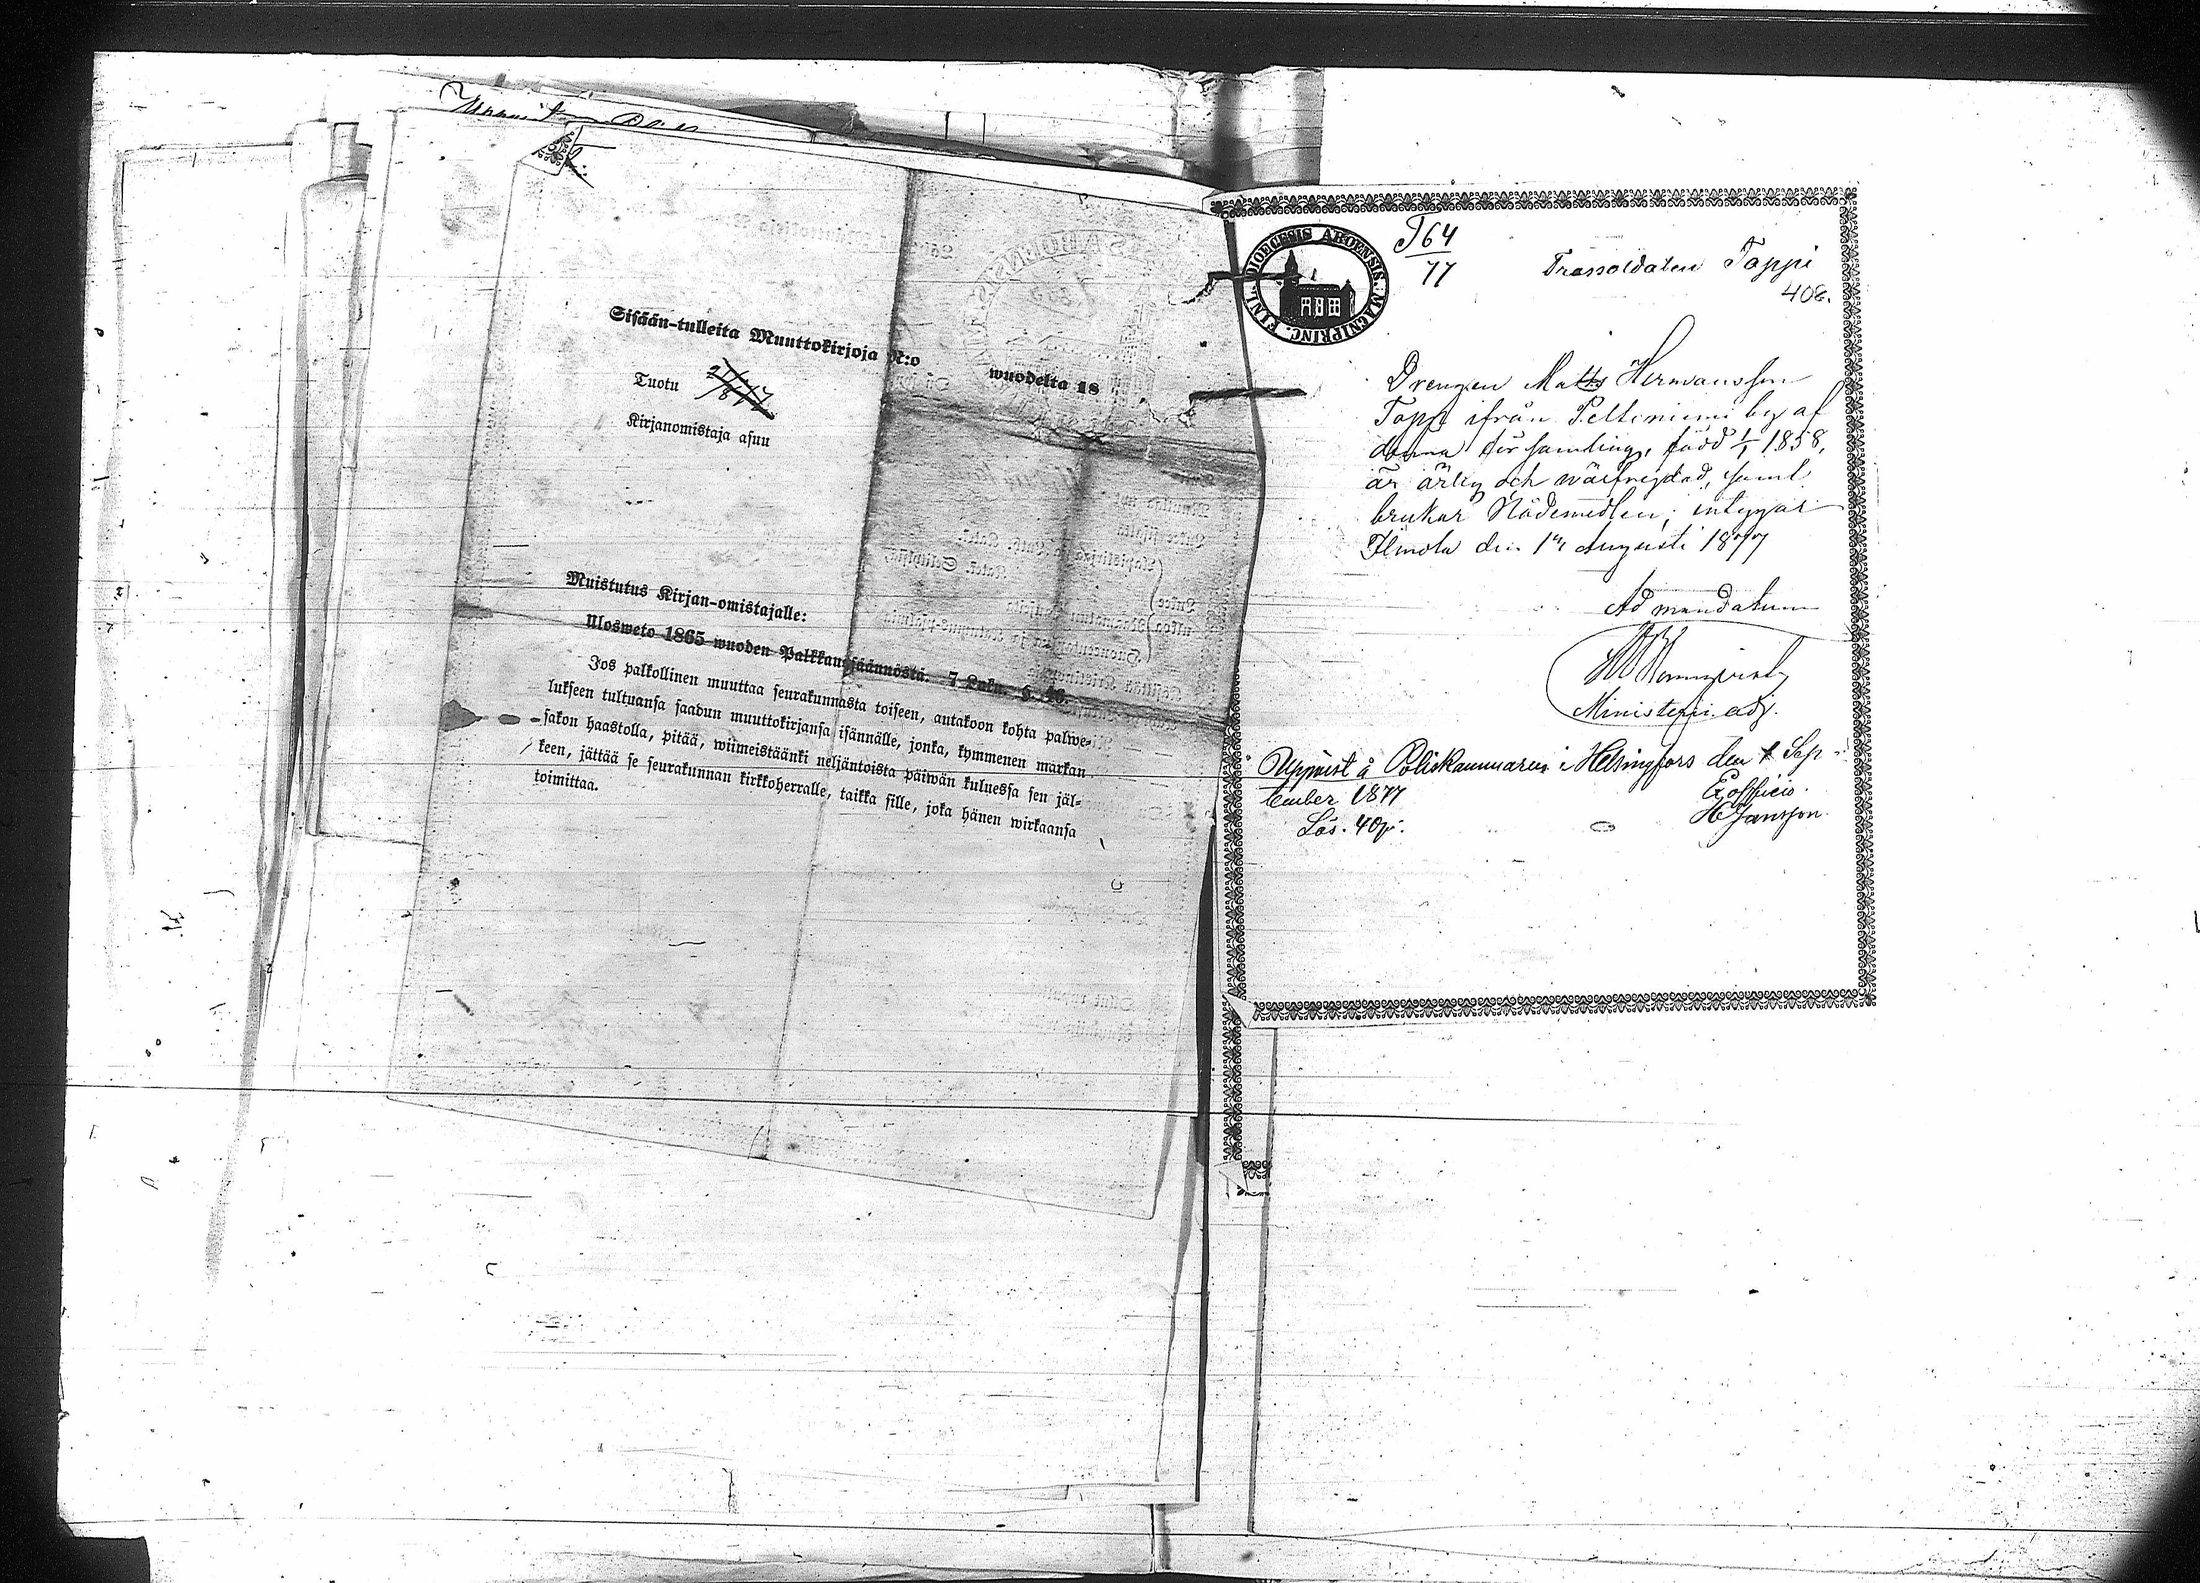 Sisään-tulleita Muuttokirjoja N:o
wuodelta 18
Tuotu
Kirjanomistaja asuu
Muistutus Kirjan-omistajalle:
Ulosweto 1865 wuoden Palkkaussäännöstä. 7 Luku. §. 46.
Jos palkollinen muuttaa seurakunnasta toiseen, antakoon kohta palwe-
lukseen tultuansa saadun muuttokirjansa isännälle, jonka, kymmenen markan
sakon haastolla, pitää, wiimeistäänki neljäntoista päiwän kuluessa sen jäl-
keen, jättää se seurakunnan kirkkoherralle, taikka sille, joka hänen wirkaansa
toimittaa.
DIOECESIS ABOENSIS. MAGNIPRINC. FINL.
T 64
77
Trossoldaten Toppi
408.
Drengen Matts Hermansson
Toppi ifrån Peltoniemi by af
denna församling, född 1/1 1858,
är ärlig och wälfrejdad, samt
brukar Nådemedlen; intygar
Ilmola den 1 Augusti 1877
Ad mandatum
Ministerii adj.
Uppvist å Poliskammaren i Helsingfors den 1 Sep-
tember 1877
Ex officio.
Lös. 40 p:.
H Jansson.